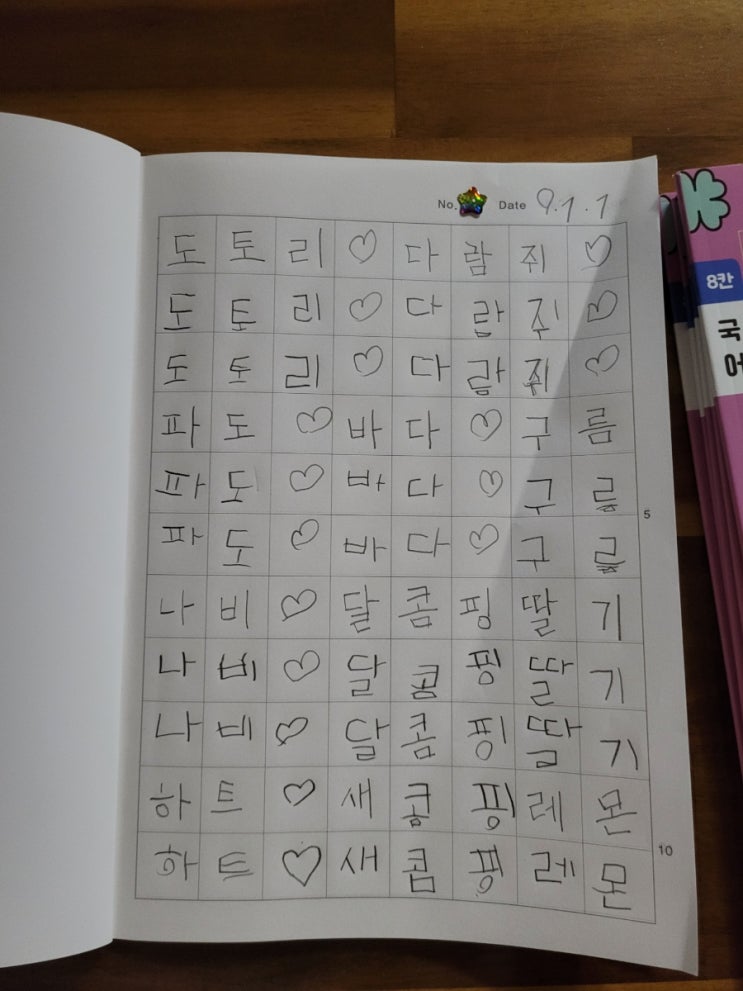 No. Date 9.1.1
도토리♡다람쥐♡
도토리♡다람쥐♡
도토리♡다람쥐♡
파도♡바다♡구름
파도♡바다♡구름
5
파도♡바다♡구름
나비♡달콤핑딸기
나비♡달콤핑딸기
나비♡달콤핑딸기
하트♡새콤핑레몬
10
하트♡새콤핑레몬
8칸
국
어